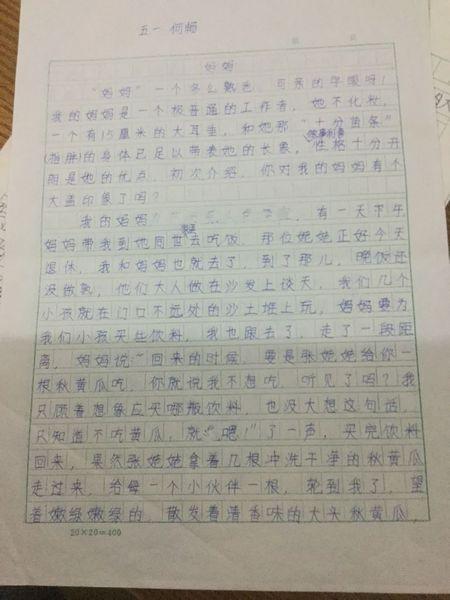 五一 何畅
妈妈
"妈妈"一个多么熟悉、可亲的字眼呀!
我的妈妈是一个极普通的工作者,她不化妆,
一个有15厘米的大耳垂,和她那"十分苗条"
(指胖)的身体已足以带表她的长象,性格十分开
朗是她的优点。初次介绍,你对我的妈妈有个
大盖印象了吗?
我的妈妈 有一天下午
妈妈带我到她同世去吃饭,那位姥姥正好今天
退休,我和妈妈也就去了,到了那儿,晚饭还
没做熟,他们大人做在沙发上谈天,我们几个
小孩就在门口不远处的沙土堆上玩,妈妈要为
我们小孩买些饮料,我也跟去了,走了一段距
离,妈妈说:"回来的时候,要是张姥姥给你一
根秋黄瓜吃,你就说我不想吃,听见了吗?我
只顾着想象应买哪瓶饮料,也没大想这句话,
只知道不吃黄瓜,就"嗯!"了一声,买完饮料
回来,果然张姥姥拿着几根冲洗干净的秋黄瓜
走过来,给每一个小伙伴一根,轮到我了,望
着嫩绿嫩绿的,散发着清香味的大头秋黄瓜,
20×20=400